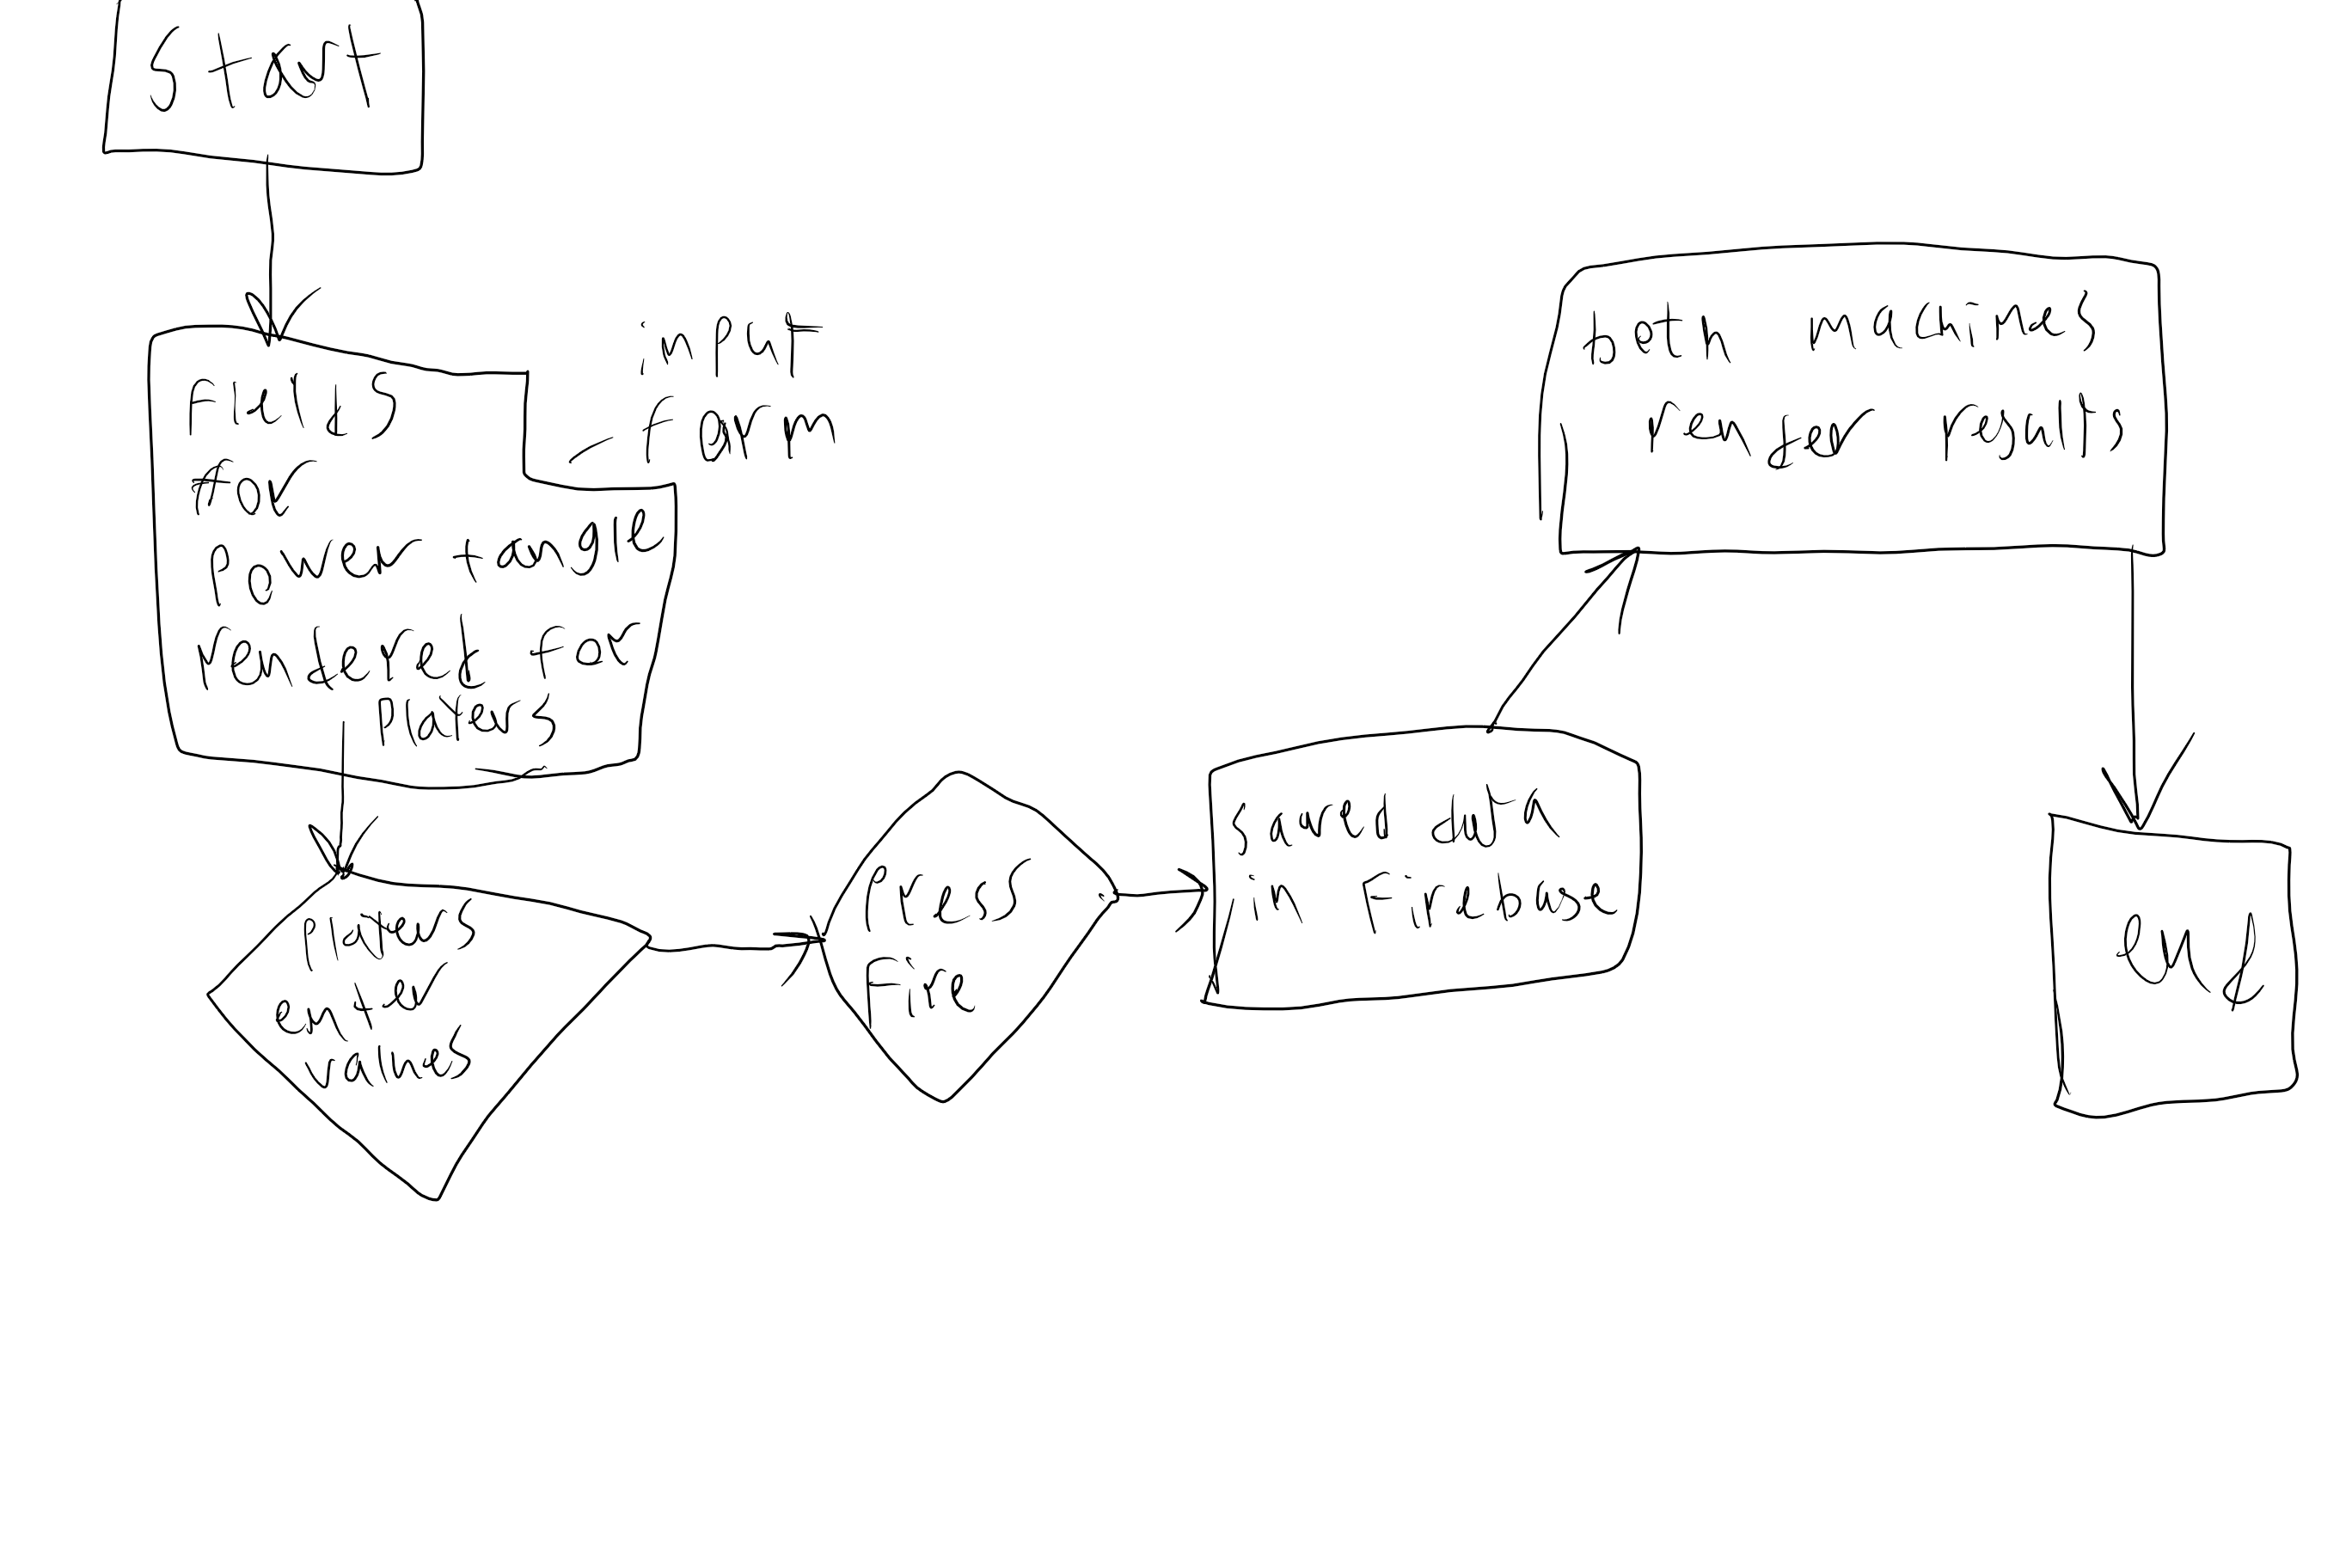 Start
fields
for
Power + angle
rendered for
Players
input
form
Players
enters
values
Press
Fire
saved data
in Firebase
both machines
render results
end